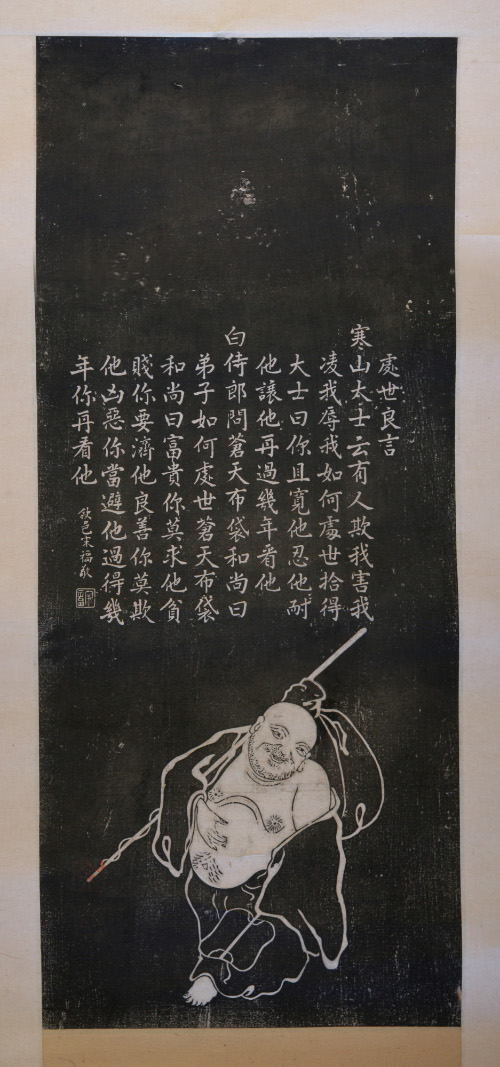 處世良言
寒山太士云有人欺我害我
凌我辱我如何處世拾得
大士曰你且寬他忍他耐
他讓他再過幾年看他
白侍郎問蒼天布袋和尚曰
弟子如何處世蒼天布袋
和尚曰富貴你莫求他貧
賤你要濟他良善你莫欺
他凶惡你當避他過得幾
年你再看他
邑宋福